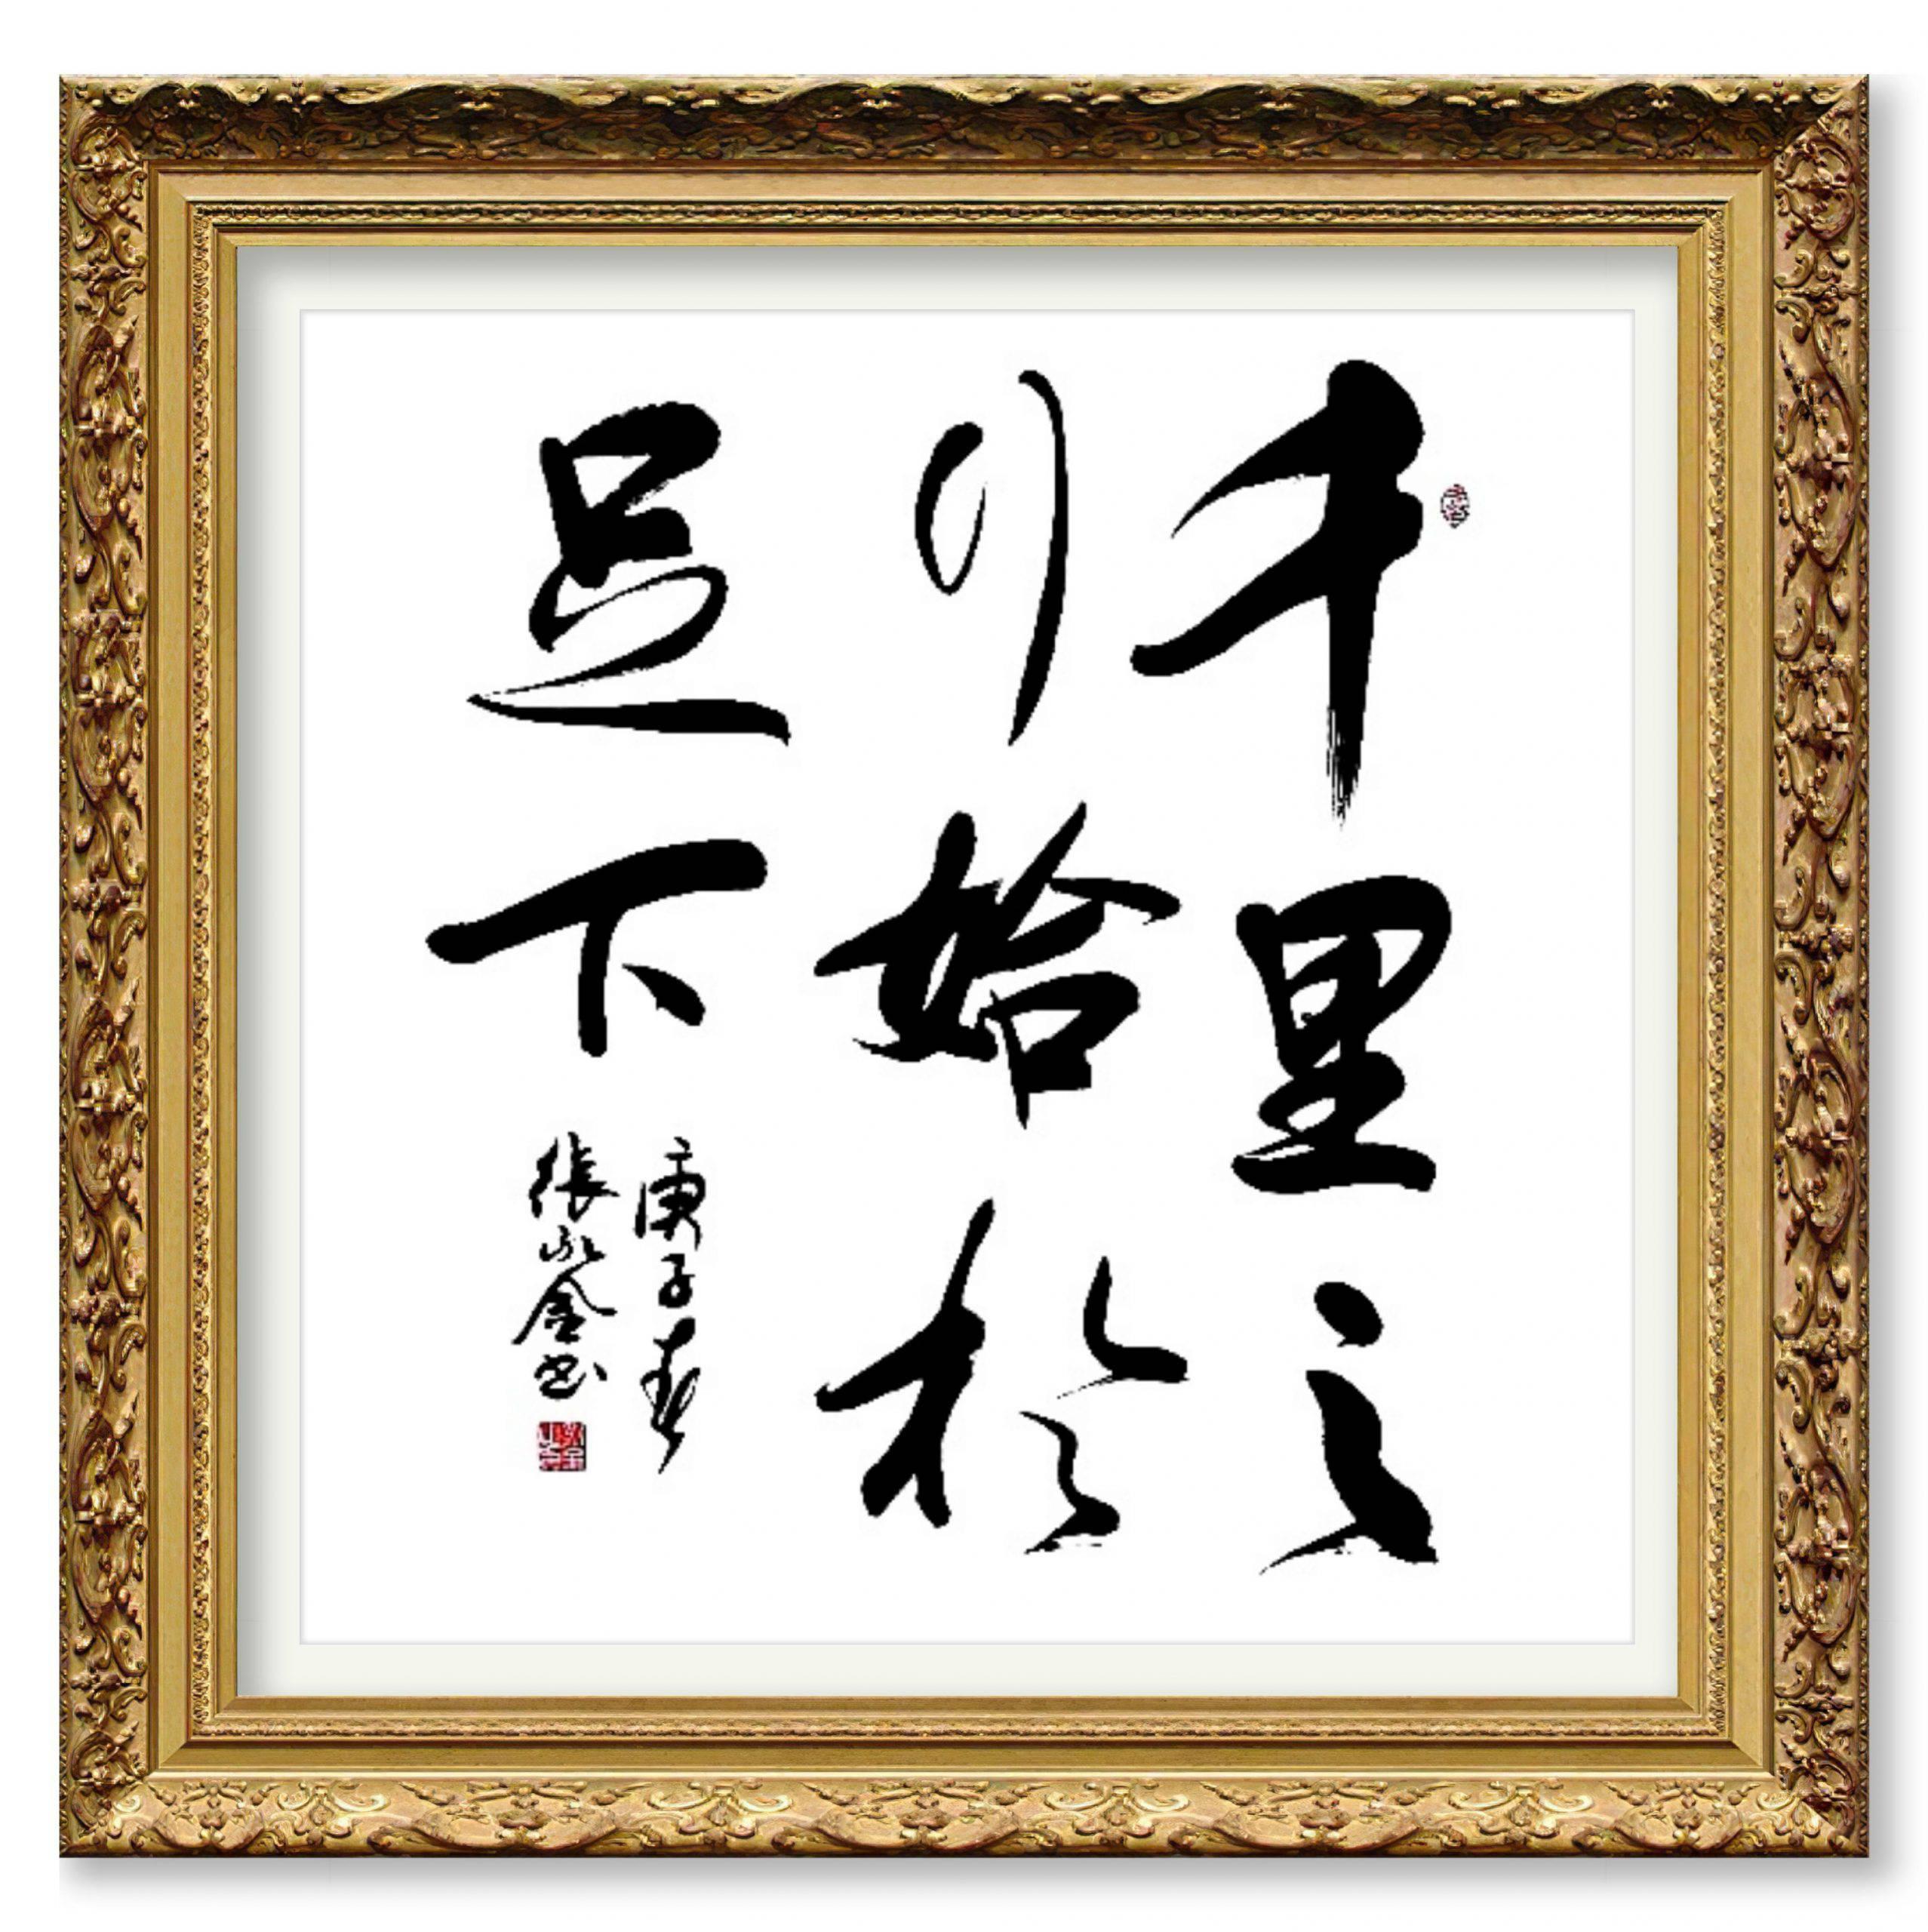 千里之
行始於
足下
庚子春
張永金书